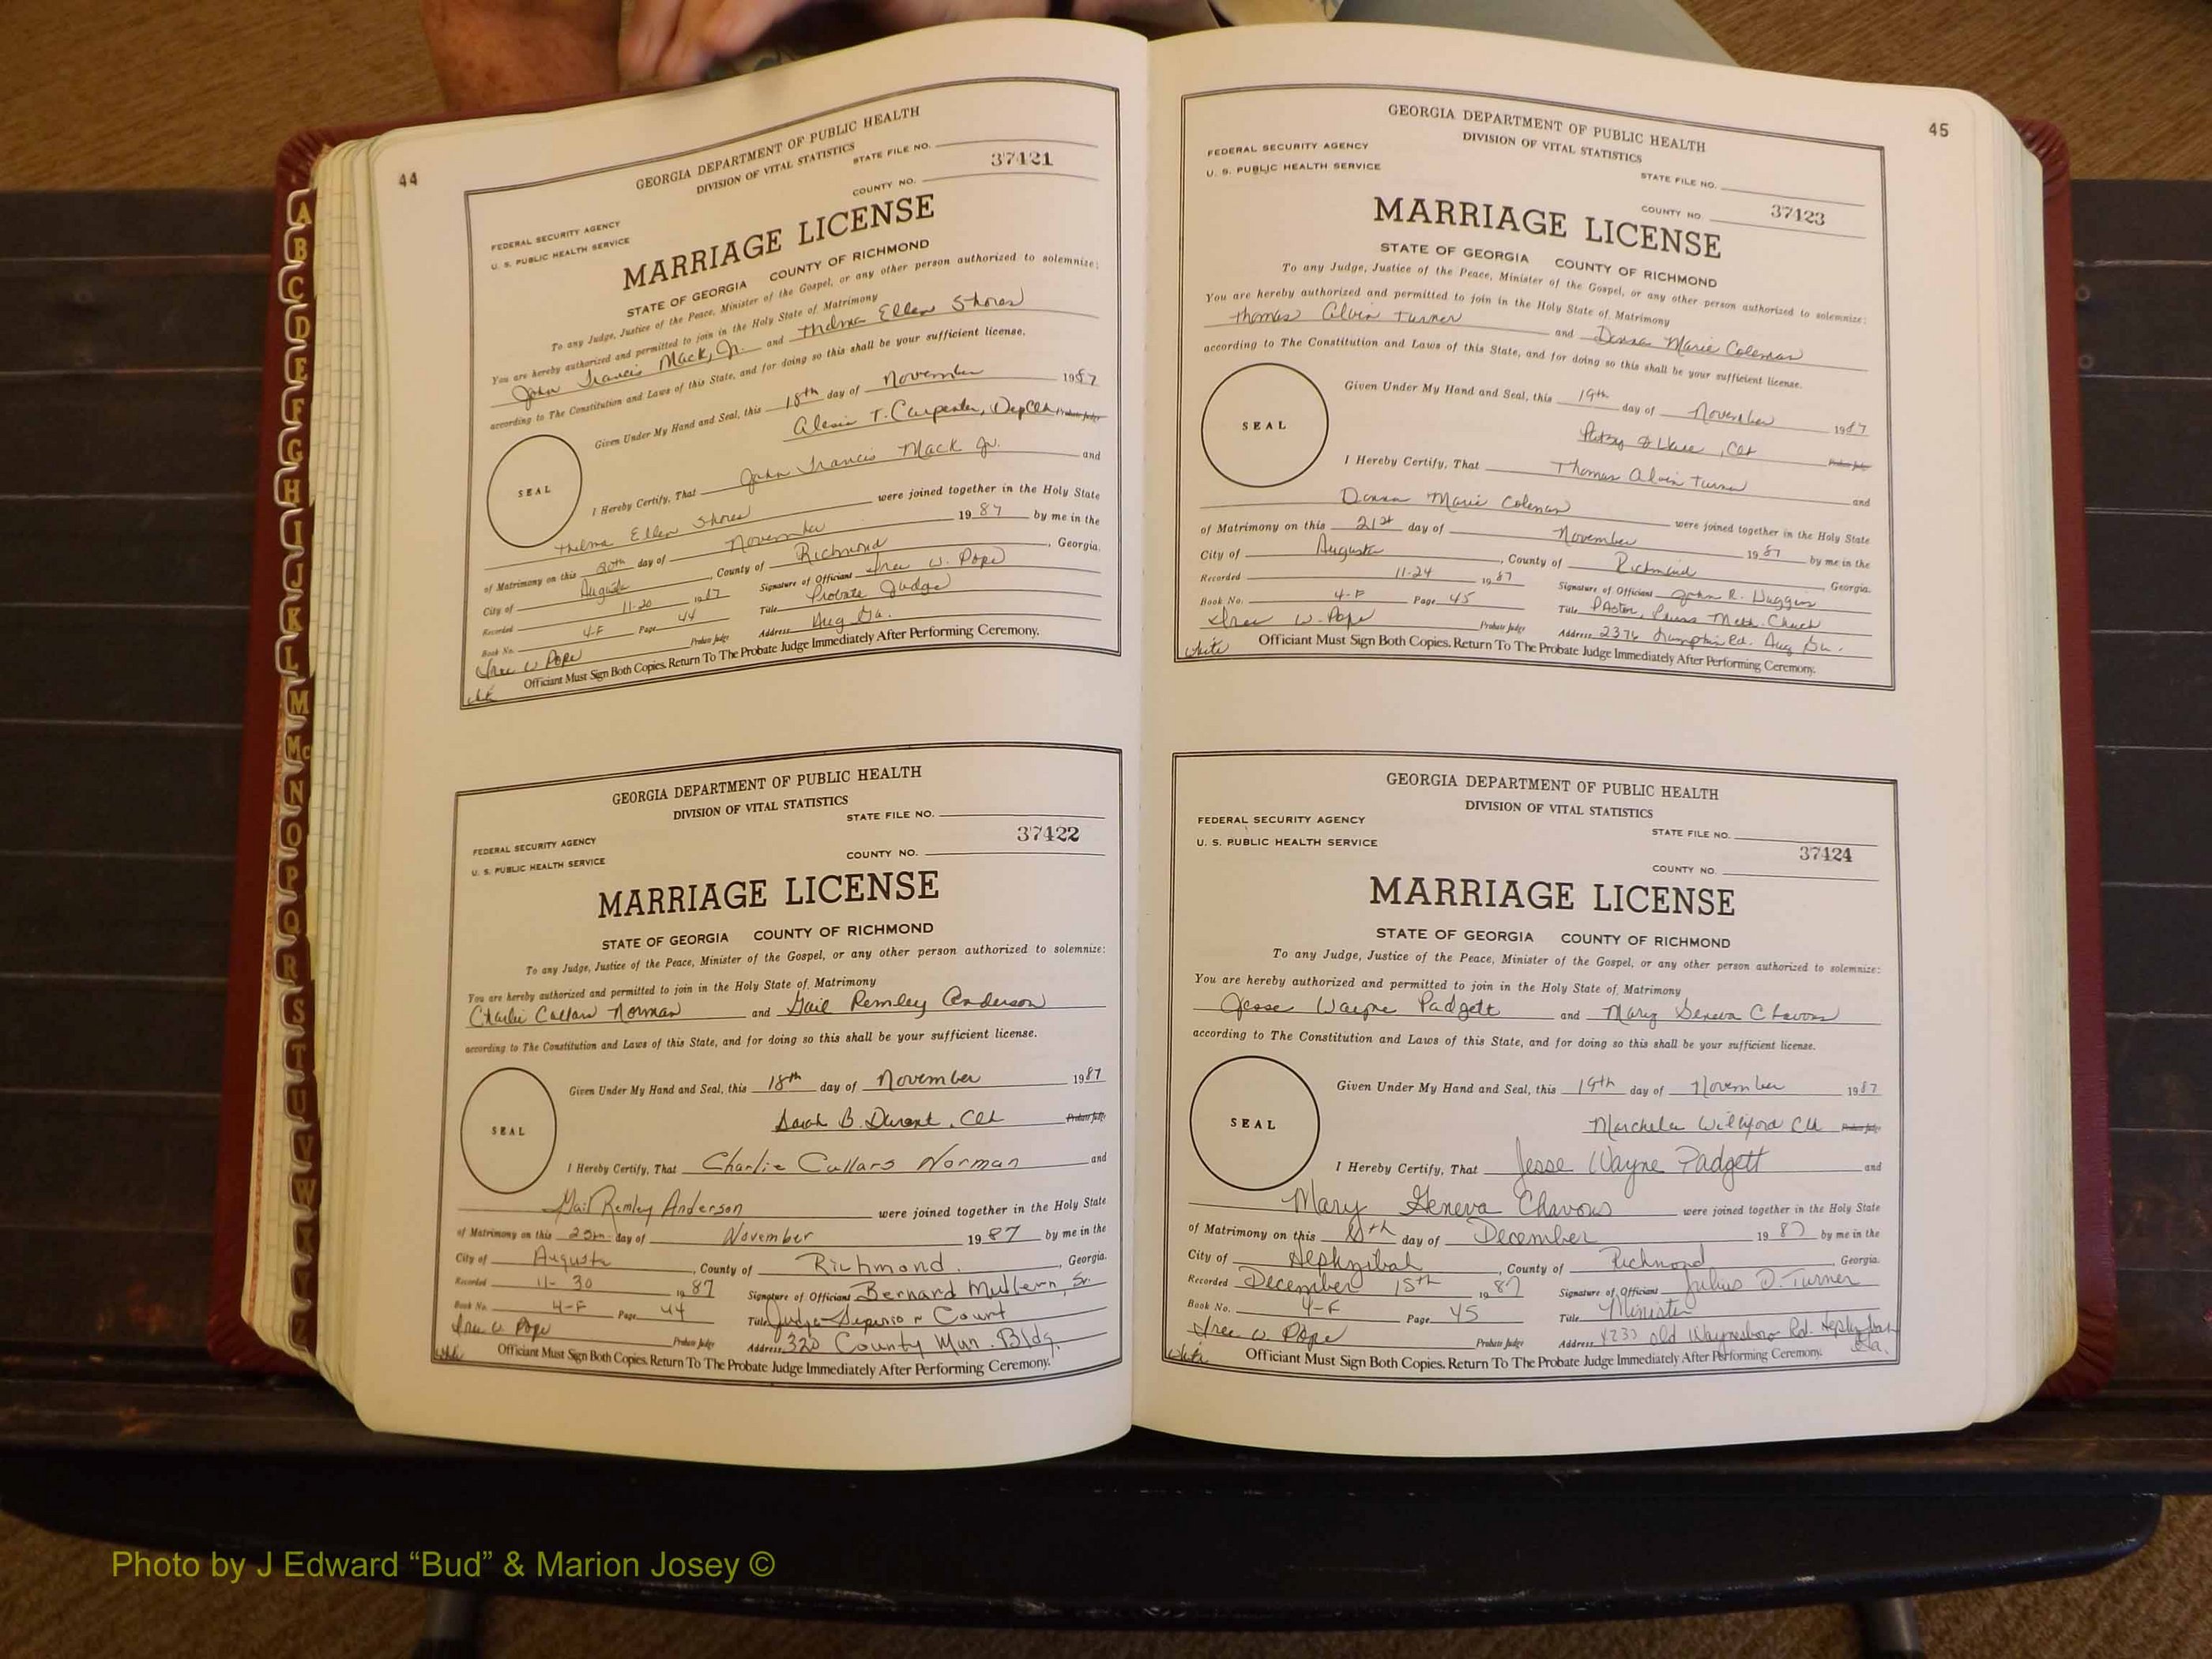 44
GEORGIA DEPARTMENT OF PUBLIC HEALTH
DIVISION OF VITAL STATISTICS
STATE FILE NO.
37421
COUNTY NO.
FEDERAL SECURITY AGENCY
U. S. PUBLIC HEALTH SERVICE
MARRIAGE LICENSE
STATE OF GEORGIA COUNTY OF RICHMOND
To any Judge, Justice of the Peace, Minister of the Gospel, or any other person authorized to solemnize:
You are hereby authorized and permitted to join in the Holy State of Matrimony
John Francis Mack, Jr. and Thelma Ellen Shores
according to The Constitution and Laws of this State, and for doing so this shall be your sufficient license.
Given Under My Hand and Seal, this 18th day of November 1987
T. Carpenter, Dep Clk Probate Judge
SEAL
I Hereby Certify, That John Francis Mack Jr. and
Thelma Ellen Shores were joined together in the Holy State
of Matrimony on this 20th day of November 1987 by me in the
City of Augusta, County of Richmond, Georgia.
Recorded 11-20 1987 Signature of Officiant W. Pope
Book No. 4-F Page 44 Title Probate Judge
W Pope Probate Judge Address Aug Ga.
Officiant Must Sign Both Copies. Return To The Probate Judge Immediately After Performing Ceremony.
GEORGIA DEPARTMENT OF PUBLIC HEALTH
DIVISION OF VITAL STATISTICS
STATE FILE NO.
37422
FEDERAL SECURITY AGENCY
COUNTY NO.
U. S. PUBLIC HEALTH SERVICE
MARRIAGE LICENSE
STATE OF GEORGIA COUNTY OF RICHMOND
To any Judge, Justice of the Peace, Minister of the Gospel, or any other person authorized to solemnize:
You are hereby authorized and permitted to join in the Holy State of Matrimony
Charlie Cullars Norman and Gail Remley Anderson
according to The Constitution and Laws of this State, and for doing so this shall be your sufficient license.
Given Under My Hand and Seal, this 18th day of November 1987
Sarah B. Durant, Clk Probate Judge
SEAL
I Hereby Certify, That Charlie Cullars Norman and
Gail Remley Anderson were joined together in the Holy State
of Matrimony on this day of November 1987 by me in the
City of Augusta, County of Richmond, Georgia.
Recorded 11-30 1987 Signature of Officiant Bernard Sr.
Book No. 4-F Page 44 Title Judge Superior Court
W Pope Probate Judge Address 320 County Mun. Bldg.
Officiant Must Sign Both Copies. Return To The Probate Judge Immediately After Performing Ceremony.
45
GEORGIA DEPARTMENT OF PUBLIC HEALTH
DIVISION OF VITAL STATISTICS
FEDERAL SECURITY AGENCY
U. S. PUBLIC HEALTH SERVICE
STATE FILE NO.
COUNTY NO. 37423
MARRIAGE LICENSE
STATE OF GEORGIA COUNTY OF RICHMOND
To any Judge, Justice of the Peace, Minister of the Gospel, or any other person authorized to solemnize:
You are hereby authorized and permitted to join in the Holy State of Matrimony
Thomas Alvin Turner and Donna Marie Coleman
according to The Constitution and Laws of this State, and for doing so this shall be your sufficient license.
Given Under My Hand and Seal, this 19th day of November 1987
Clk Probate Judge
SEAL
I Hereby Certify, That Thomas Alvin Turner and
Donna Marie Coleman were joined together in the Holy State
of Matrimony on this 21st day of November 1987 by me in the
City of Augusta, County of Richmond, Georgia.
Recorded 11-24 1987 Signature of Officiant John R. Huggins
Book No. 4-F Page 45 Title Pastor, Meth. Church
W. Pope Probate Judge Address 2376 Lumpkin Rd. Aug Ga.
white
Officiant Must Sign Both Copies. Return To The Probate Judge Immediately After Performing Ceremony.
GEORGIA DEPARTMENT OF PUBLIC HEALTH
DIVISION OF VITAL STATISTICS
FEDERAL SECURITY AGENCY
STATE FILE NO.
U. S. PUBLIC HEALTH SERVICE
37424
COUNTY NO.
MARRIAGE LICENSE
STATE OF GEORGIA COUNTY OF RICHMOND
To any Judge, Justice of the Peace, Minister of the Gospel, or any other person authorized to solemnize:
You are hereby authorized and permitted to join in the Holy State of Matrimony
Jesse Wayne Padgett and Mary Geneva Chavous
according to The Constitution and Laws of this State, and for doing so this shall be your sufficient license.
Given Under My Hand and Seal, this 19th day of November 1987
Williford Clk Probate Judge
SEAL
I Hereby Certify, That Jesse Wayne Padgett and
Mary Geneva Chavous were joined together in the Holy State
of Matrimony on this day of December 1987 by me in the
City of Hephzibah, County of Richmond, Georgia.
Recorded December 15th 1987 Signature of Officiant Julius D. Turner
Book No. 4-F Page 45 Title Minister
W Pope Probate Judge Address 4233 Old Waynesboro Rd. Hephzibah Ga.
white
Officiant Must Sign Both Copies. Return To The Probate Judge Immediately After Performing Ceremony.
A
B
C
D
E
F
G
H
I
J
K
L
M
Mc
N
O
P
Q
R
S
T
U
V
W
X
Y
Z
Photo by J Edward “Bud” & Marion Josey ©